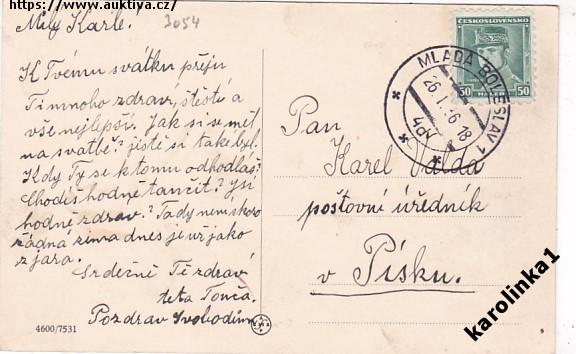 https://www.auktiva.cz/
3054
Milý Karle!
K Tvému svátku přeju
Ti mnoho zdraví, štěstí a
vše nejlepší. Jak si se měl
na svatbě? jistě si také byl.
Kdy Ty se k tomu odhodláš?
Chodíš hodně tančit? Jsi
hodně zdráv? Tady není skoro
žádná zima dnes je už jako
z jara.
Srdečně Tě zdraví
teta Tonča.
Pozdrav Svobodům
4600/7531
ČESKOSLOVENSKO
50 HALÉŘŮ 50
MLADÁ BOLESLAV 1
26.I.36 18
Pan
Karel Valda
poštovní úředník
v Písku.
karolinka1